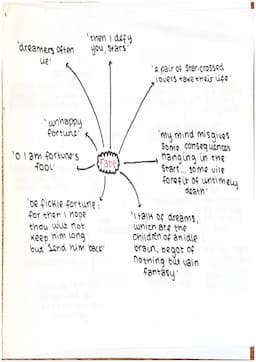 'then I defy
you, stars'
'dreamers often
lie'
'a pair of star-crossed
lovers take their life'
'unhappy
fortune'
'O I am fortune's
fool'
Fate
'my mind misgives
some consequences
hanging in the
stars... some vile
forefit of untimely
death'
'be fickle fortune:
for then I hope
thou wilt not
keep him long
but send him back'
'I talk of dreams,
which are the
children of an idle
brain, begot of
nothing but vain
fantasy'